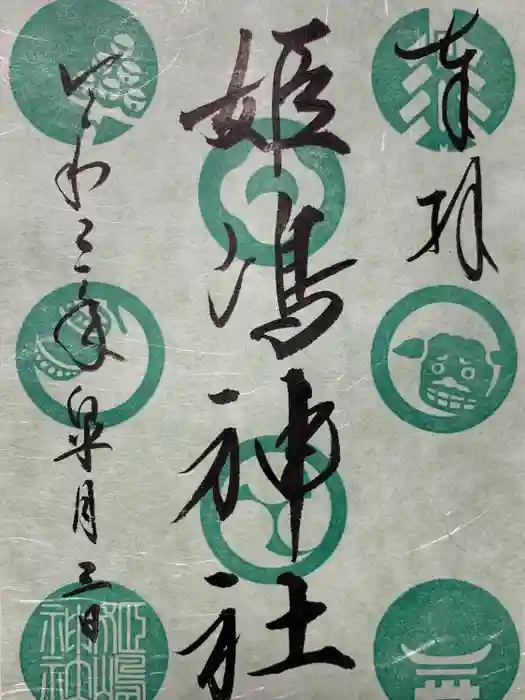 奉拝
姫嶋神社
令和三年皐月三日
姫嶋神社